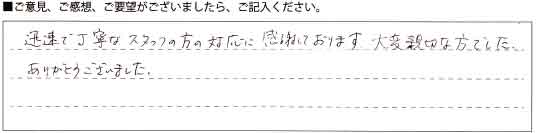 ■ご意見、ご感想、ご要望がございましたら、ご記入ください。
迅速で丁寧なスタッフの方の対応に感謝しております 大変親切な方でした。
ありがとうございました。